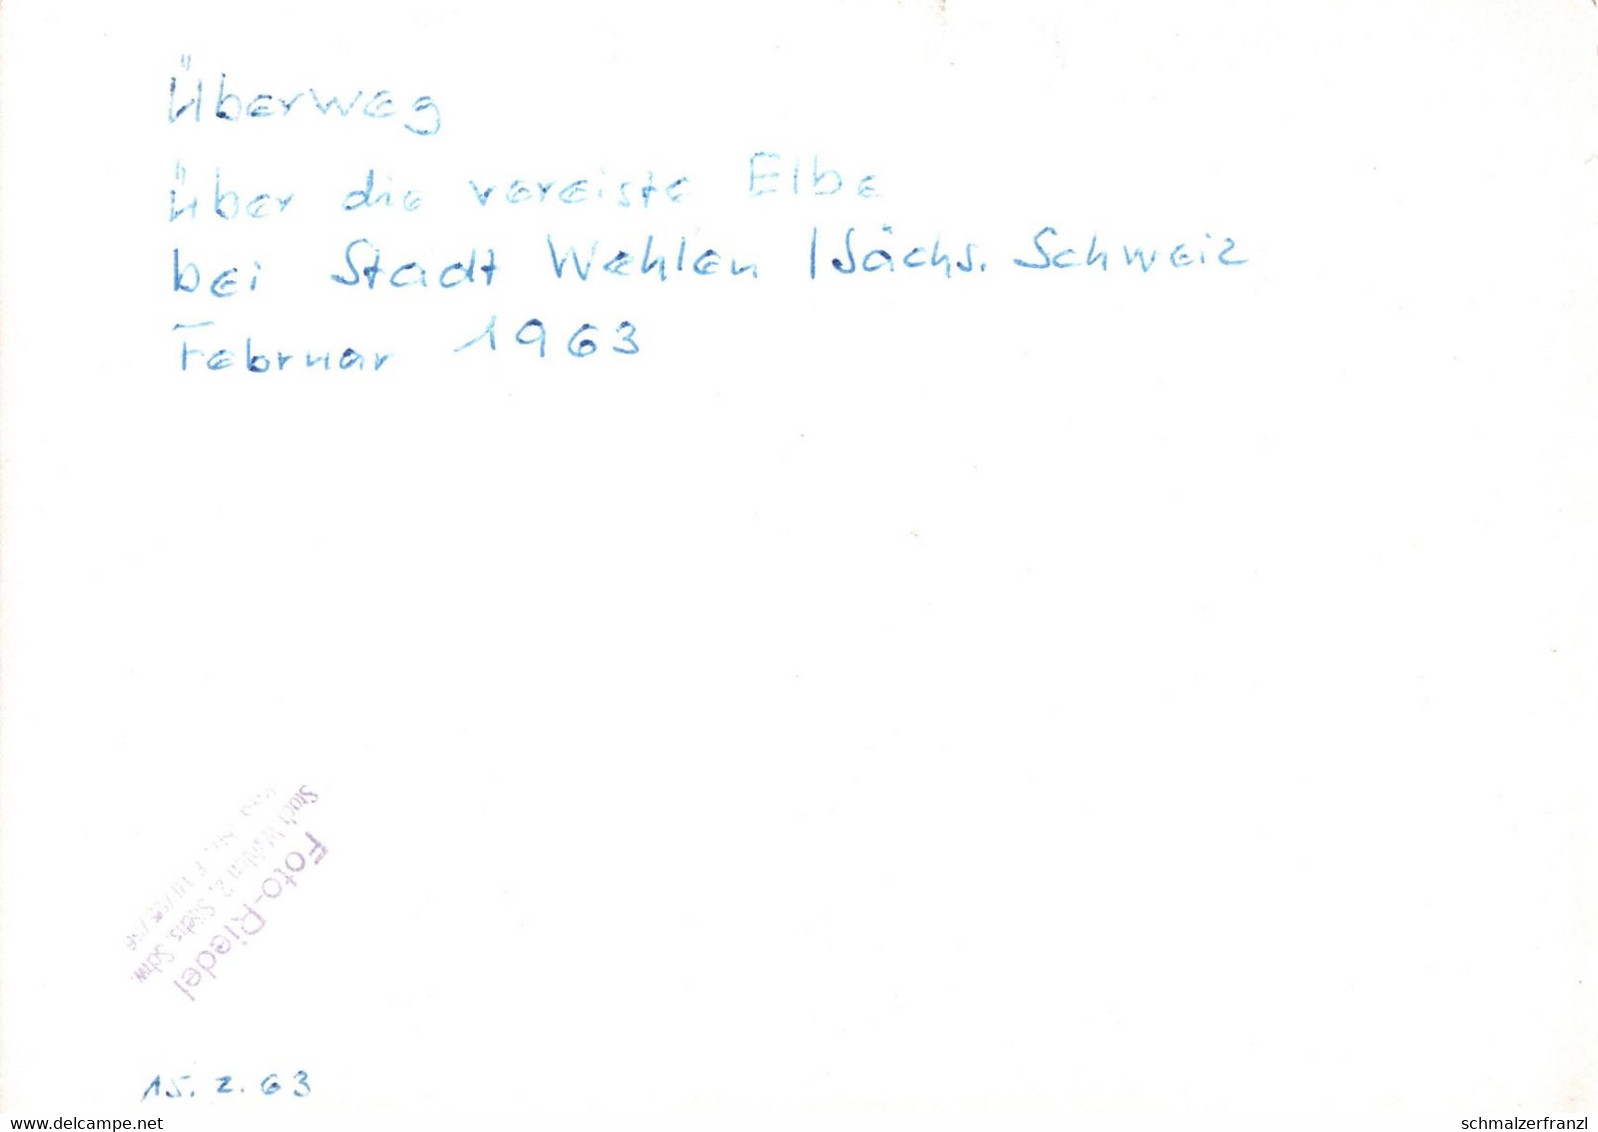 Überweg
über die vereiste Elbe
bei Stadt Wehlen / Sächs. Schweiz
Februar 1963
Foto-Riedel
Stadt Wehlen 2, Sächs. Schw.
15. 2. 63
www.delcampe.net
schmalzerfranzl